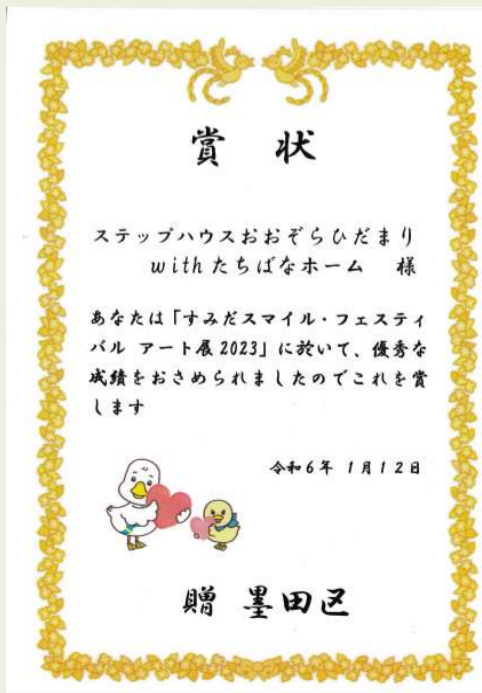 賞　状
ステップハウスおおぞらひだまり
withたちばなホーム　様
あなたは「すみだスマイル・フェスティ
バル アート展2023」に於いて、優秀な
成績をおさめられましたのでこれを賞
します
令和6年 1月12日
贈 墨田区